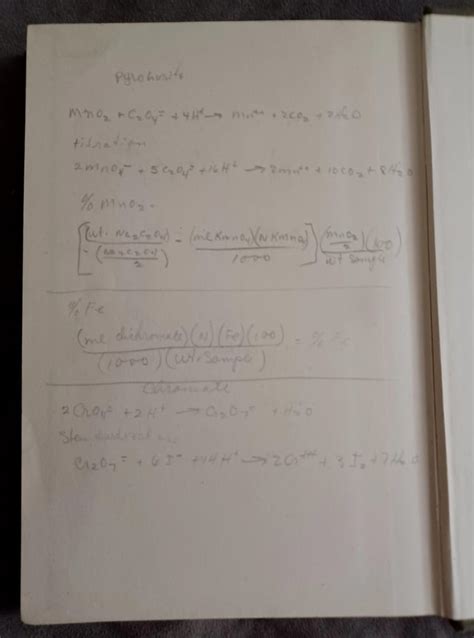 Pyrolusite
MnO₂ + C₂O₄⁼ + 4H⁺ → Mn⁺⁺ + 2CO₂ + 2H₂O
titration
2MnO₄⁻ + 5C₂O₄⁼ + 16H⁺ → 2Mn⁺⁺ + 10CO₂ + 8H₂O
% MnO₂ =
[ wt. Na₂C₂O₄ / (Na₂C₂O₄ / 2) - (ml KMnO₄)(N KMnO₄) / 1000 ] (MnO₂ / 2)(100) / wt Sample
% Fe
(ml dichromate)(N)(Fe)(100) / (1000)(Wt. Sample) = % Fe
Chromate
2CrO₄⁼ + 2H⁺ → Cr₂O₇⁼ + H₂O
Cr₂O₇⁼ + 6I⁻ + 14H⁺ → 2Cr⁺⁺⁺ + 3I₂ + 7H₂O